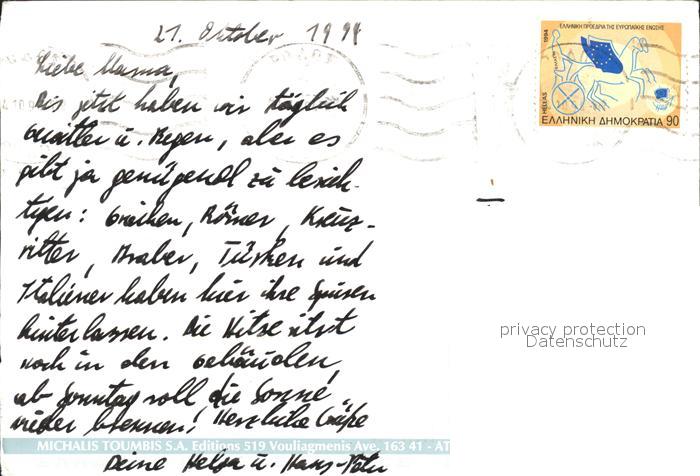 21. Oktober 1994
Liebe Mama,
Bis jetzt haben wir täglich
Gewitter u. Regen, aber es
gibt ja genügend zu besich-
tigen: Griechen, Römer, Kreuz-
ritter, Araber, Türken und
Italiener haben hier ihre Spuren
hinterlassen. Die Hitze sitzt
noch in den Gebäuden,
ab Sonntag soll die Sonne
wieder brennen! Herzliche Grüße
Deine Helga u. Hans-Peter
ΕΛΛΗΝΙΚΗ ΠΡΟΕΔΡΙΑ ΤΗΣ ΕΥΡΩΠΑΪΚΗΣ ΕΝΩΣΗΣ
1994
HELLAS
ΕΛΛΗΝΙΚΗ ΔΗΜΟΚΡΑΤΙΑ 90
privacy protection
Datenschutz
MICHALIS TOUMBIS S.A. Editions 519 Vouliagmenis Ave. 163 41 - AT